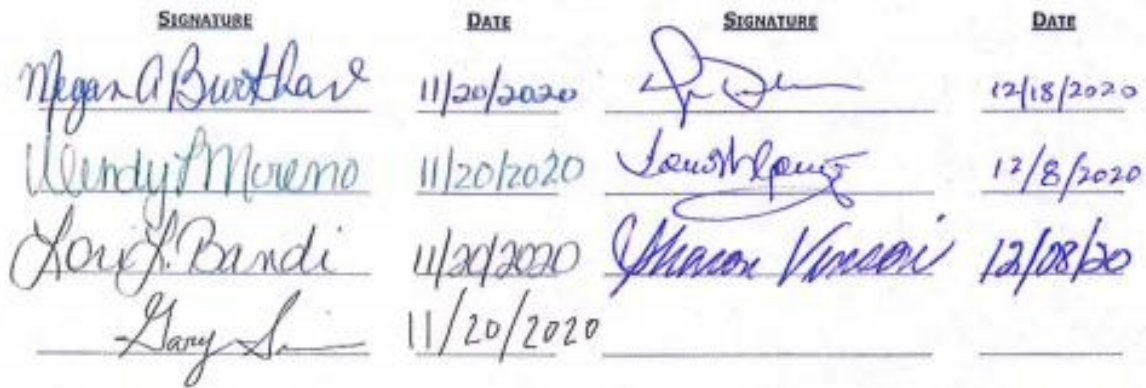 SIGNATURE DATE SIGNATURE DATE
Megan A 11/20/2020 12/18/2020
Wendy L Moreno 11/20/2020 12/8/2020
Lori L. Bandi 11/20/2020 Sharon Vinson 12/08/20
Gary 11/20/2020